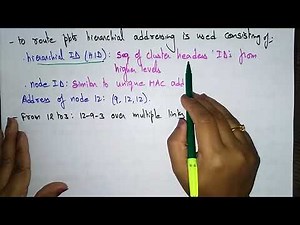 - to route pkts hierarchial addressing is used consisting of:
. hierarchical ID (HID): Seq of cluster headers' ID's from
higher levels
. node ID: Similar to unique MAC add
Address of node 12: (9, 12, 12).
From 12 to 3: 12-9-3 over multiple links